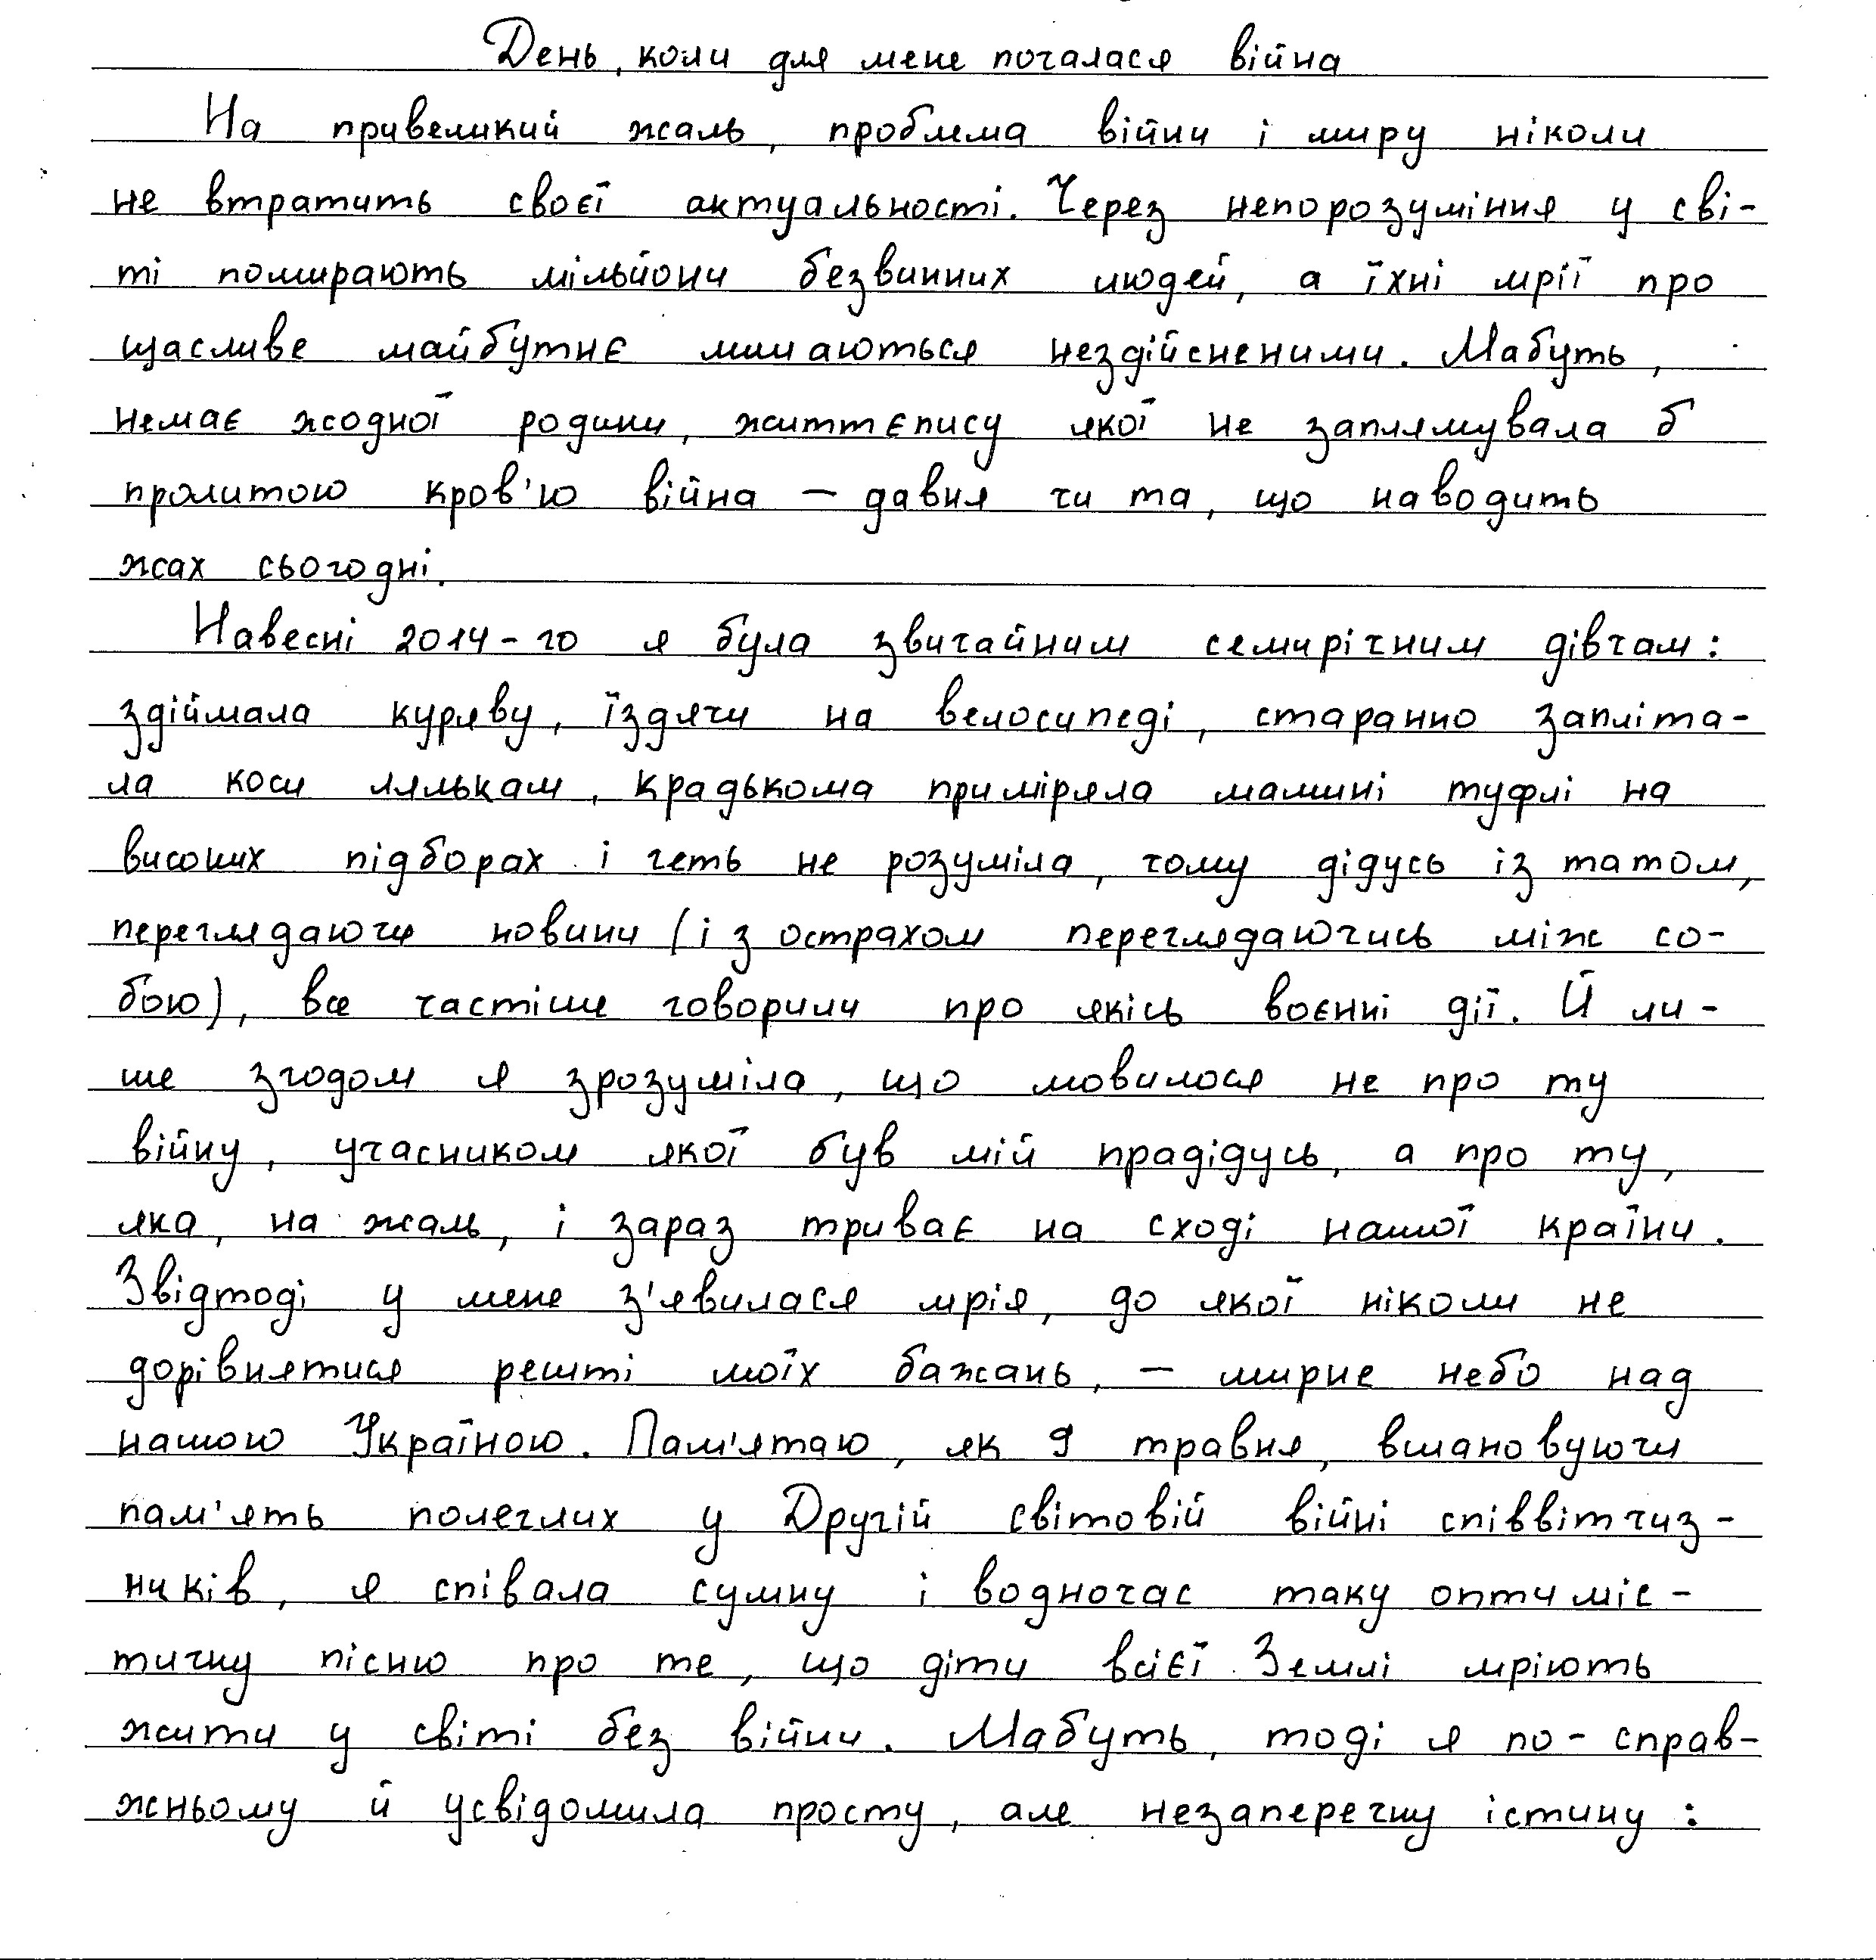 День, коли для мене почалася війна
На превеликий жаль, проблема війни і миру ніколи
не втратить своєї актуальності. Через непорозуміння у сві-
ті помирають мільйони безвинних людей, а їхні мрії про
щасливе майбутнє лишаються нездійсненими. Мабуть,
немає жодної родини, життєпису якої не заплямувала б
пролитою кров'ю війна – давня чи та, що наводить
жах сьогодні.
Навесні 2014-го я була звичайним семирічним дівчам:
здіймала куряву, їздячи на велосипеді, старанно запліта-
ла коси лялькам, крадькома приміряла мамині туфлі на
високих підборах і геть не розуміла, чому дідусь із татом,
переглядаючи новини (і з острахом переглядаючись між со-
бою), все частіше говорили про якісь воєнні дії. Й ли-
ше згодом я зрозуміла, що мовилося не про ту
війну, учасником якої був мій прадідусь, а про ту,
яка, на жаль, і зараз триває на сході нашої країни.
Звідтоді у мене з'явилася мрія, до якої ніколи не
дорівнятися решті моїх бажань, – мирне небо над
нашою Україною. Пам'ятаю, як 9 травня, вшановуючи
пам'ять полеглих у Другій світовій війні співвітчиз-
ників, я співала сумну і водночас таку оптиміс-
тичну пісню про те, що діти всієї Землі мріють
жити у світі без війни. Мабуть, тоді я по-справ-
жньому й усвідомила просту, але незаперечну істину: